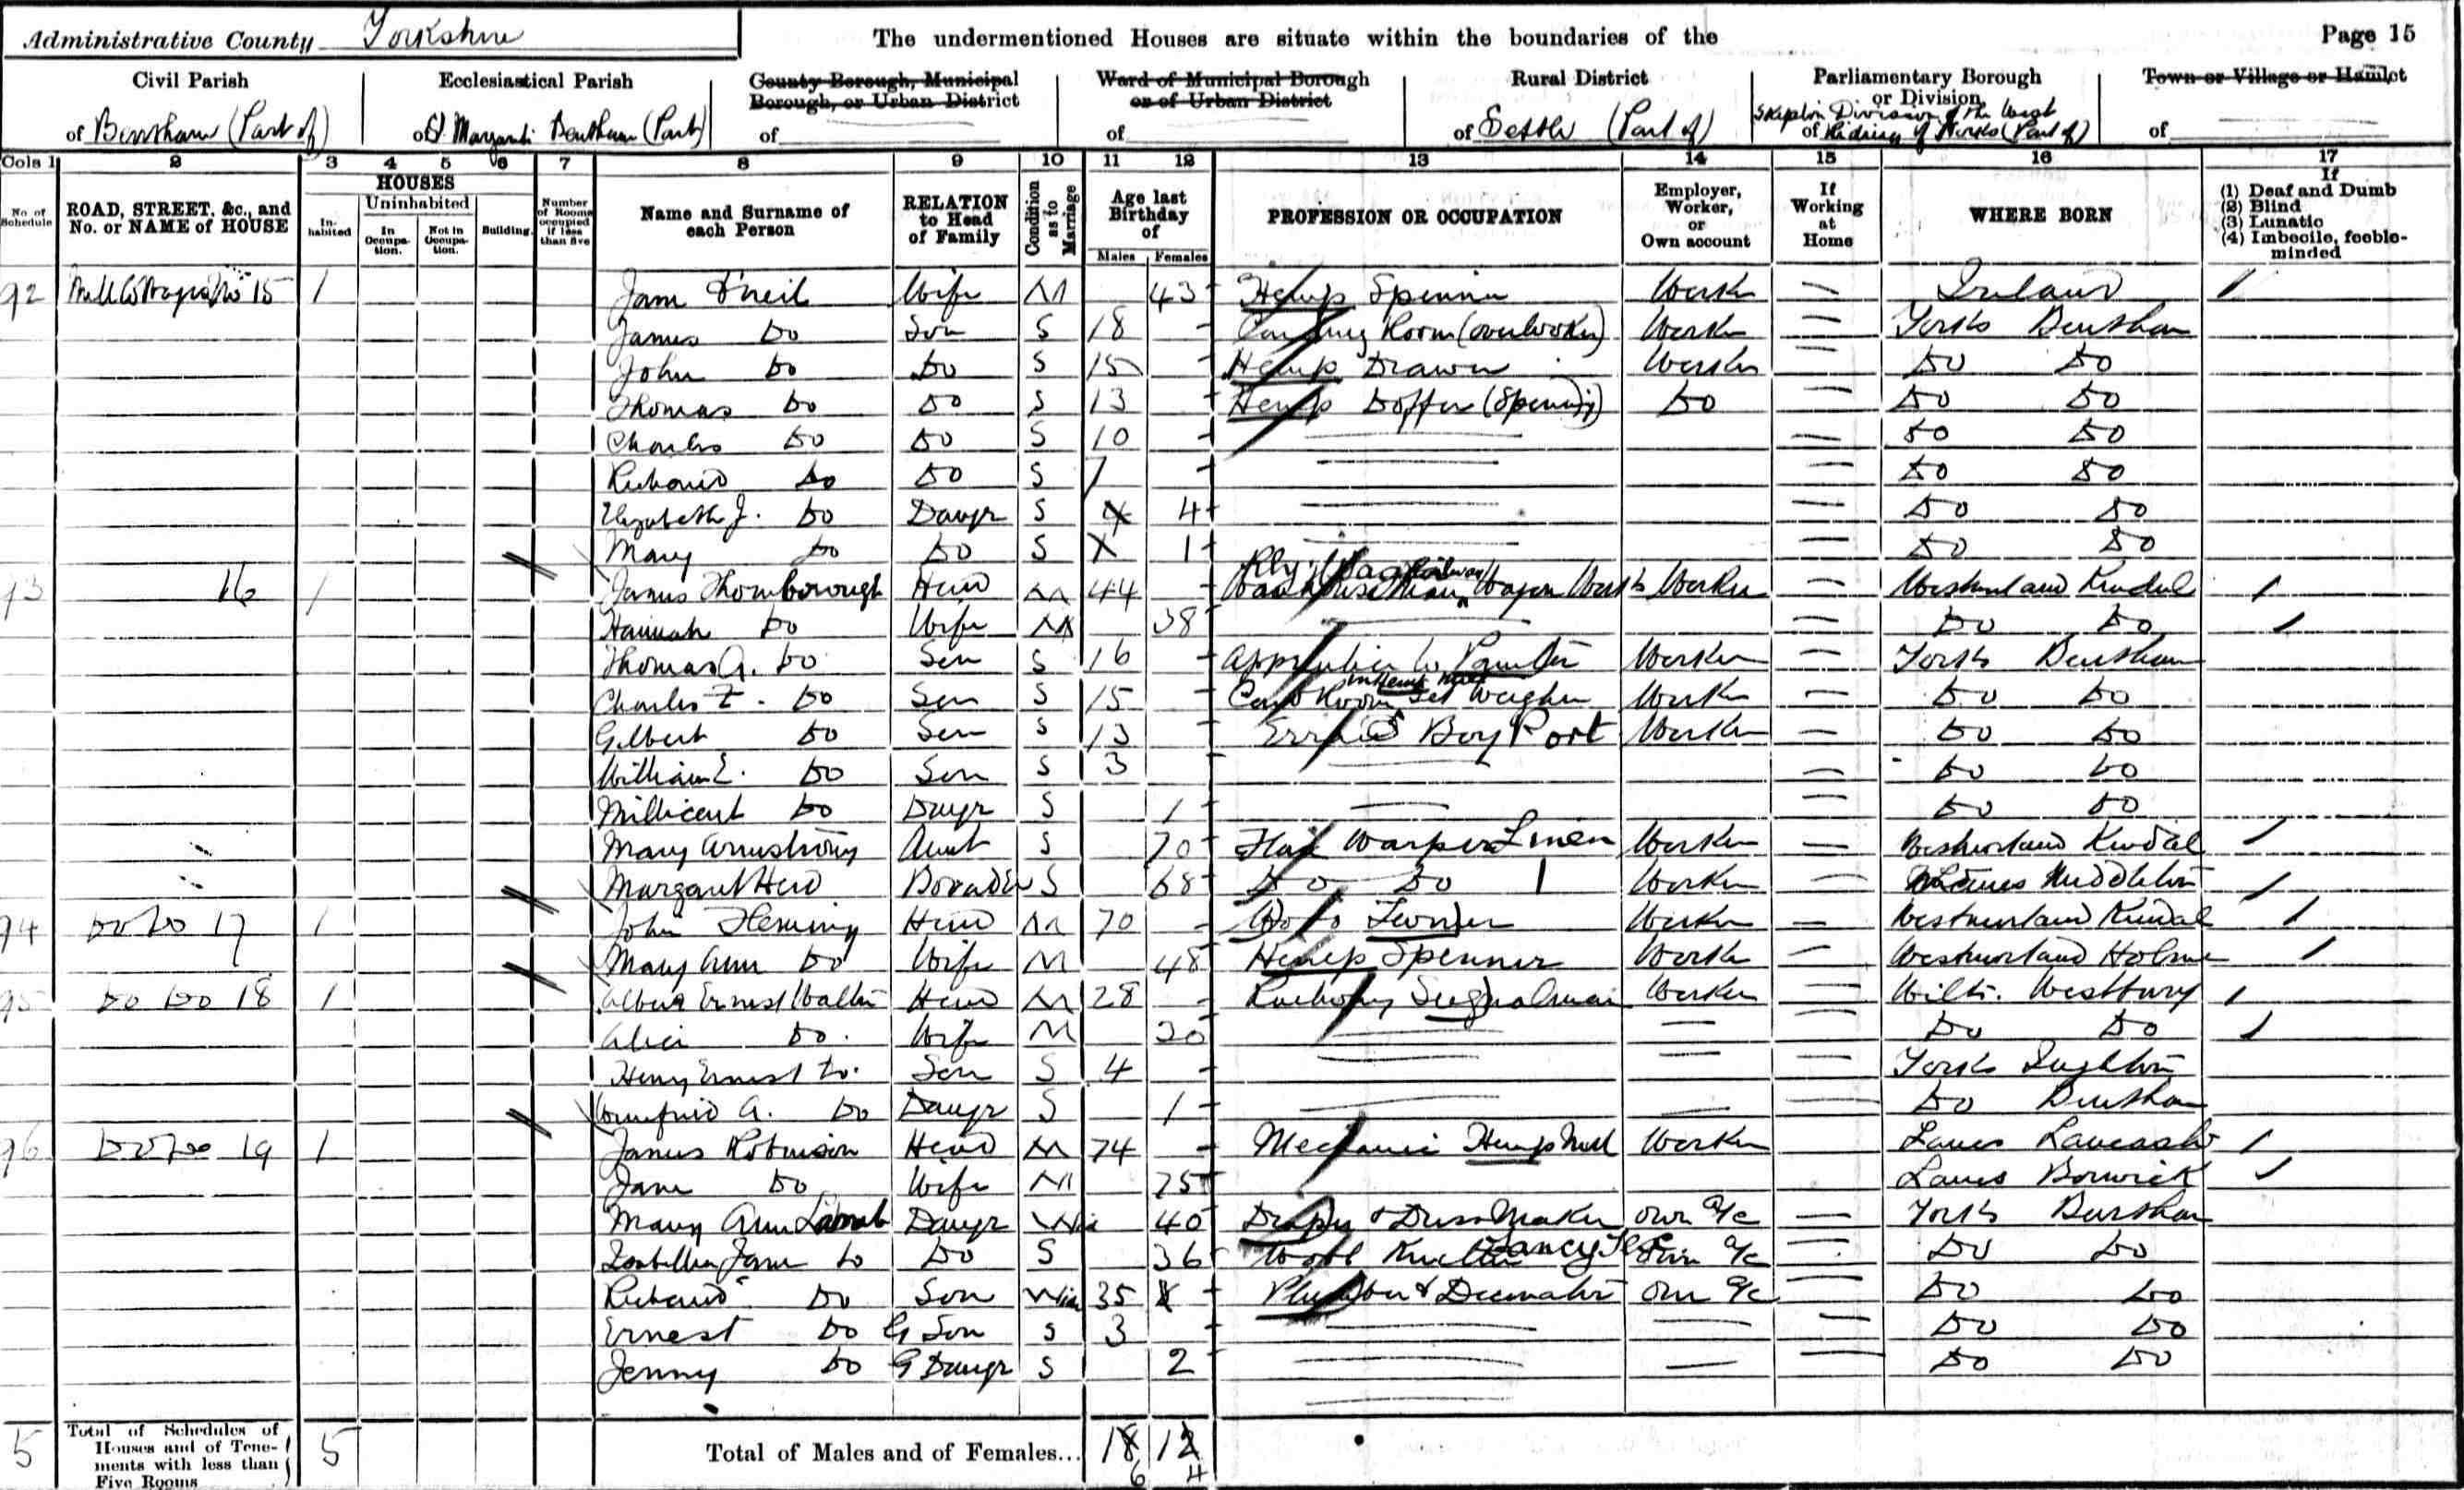 Administrative County Yorkshire
The undermentioned Houses are situate within the boundaries of the
Page 15
Civil Parish
of Bentham (Part of)
Ecclesiastical Parish
of St Margarets Bentham (Part)
County Borough, Municipal Borough, or Urban District
of
Ward of Municipal Borough or of Urban District
of
Rural District
of Settle (Part of)
Parliamentary Borough or Division
of Skipton Division of the West Riding of Yorks (Part of)
Town or Village or Hamlet
of
Cols 1 2 3 4 5 6 7 8 9 10 11 12 13 14 15 16 17
No of Schedule
ROAD, STREET, &c., and No. or NAME of HOUSE
HOUSES
Inhabited
Uninhabited
In Occupation.
Not in Occupation.
Building.
Number of Rooms occupied if less than five
Name and Surname of each Person
RELATION to Head of Family
Condition as to Marriage
Age last Birthday of
Males Females
PROFESSION OR OCCUPATION
Employer, Worker, or Own account
If Working at Home
WHERE BORN
If
(1) Deaf and Dumb
(2) Blind
(3) Lunatic
(4) Imbecile, feeble-minded
92 Mill Cottages No 15 1 Jane O'Neil Wife M 43 Hemp Spinner Worker Ireland
James Do Son S 18 Carding Room (overlooker) Worker Yorks Bentham
John Do Do S 15 Hemp Drawer Worker Do Do
Thomas Do Do S 13 Hemp Doffer (Spinning) Do Do Do
Charles Do Do S 10 Do Do
Richard Do Do S 7 Do Do
Elizabeth J. Do Daugr S 4 Do Do
Mary Do Do S 1 Do Do
93 16 1 James Thornborough Head M 44 Wagon Works Worker Westmorland Kendal
Hannah Do Wife M 38 Do Do
Thomas A. Do Son S 16 Apprentice to Painter Worker Yorks Bentham
Charles F. Do Son S 15 Card Room Set Weigher in Hemp Mill Worker Do Do
Gilbert Do Son S 13 Errand Boy Port Worker Do Do
William E. Do Son S 3 Do Do
Millicent Do Daugr S 1 Do Do
Mary Armstrong Aunt S 70 Flax Warper Linen Worker Westmorland Kendal
Margaret Herd Boarder S 68 Do Do Worker Middleton
94 Do Do 17 1 John Fleming Head M 70 Worker Westmorland Kendal
Mary Ann Do Wife M 48 Hemp Spinner Worker Westmorland Holme
95 Do Do 18 1 Albert Ernest Walter Head M 28 Railway Signalman Worker Wilts. Westbury
Alice Do. Wife M 30 Do Do
Henry Ernest Do. Son S 4 Yorks Ingleton
Winifred A. Do Daugr S 1 Do Bentham
96 Do Do 19 1 James Robinson Head M 74 Mechanic Hemp Mill Worker Lancs Lancaster
Jane Do Wife M 75 Lancs Borwick
Mary Ann Lamb Daugr Wid 40 Draper & Dress Maker own a/c Yorks Bentham
Isabella Jane Do Do S 36 Wool Knitter Fancy Own a/c Do Do
Richard Do Son Wid 35 Plumber & Decorator Own a/c Do Do
Ernest Do G Son S 3 Do Do
Jenny Do G Daugr S 2 Do Do
5 Total of Schedules of Houses and of Tenements with less than Five Rooms 5
Total of Males and of Females... 16 14